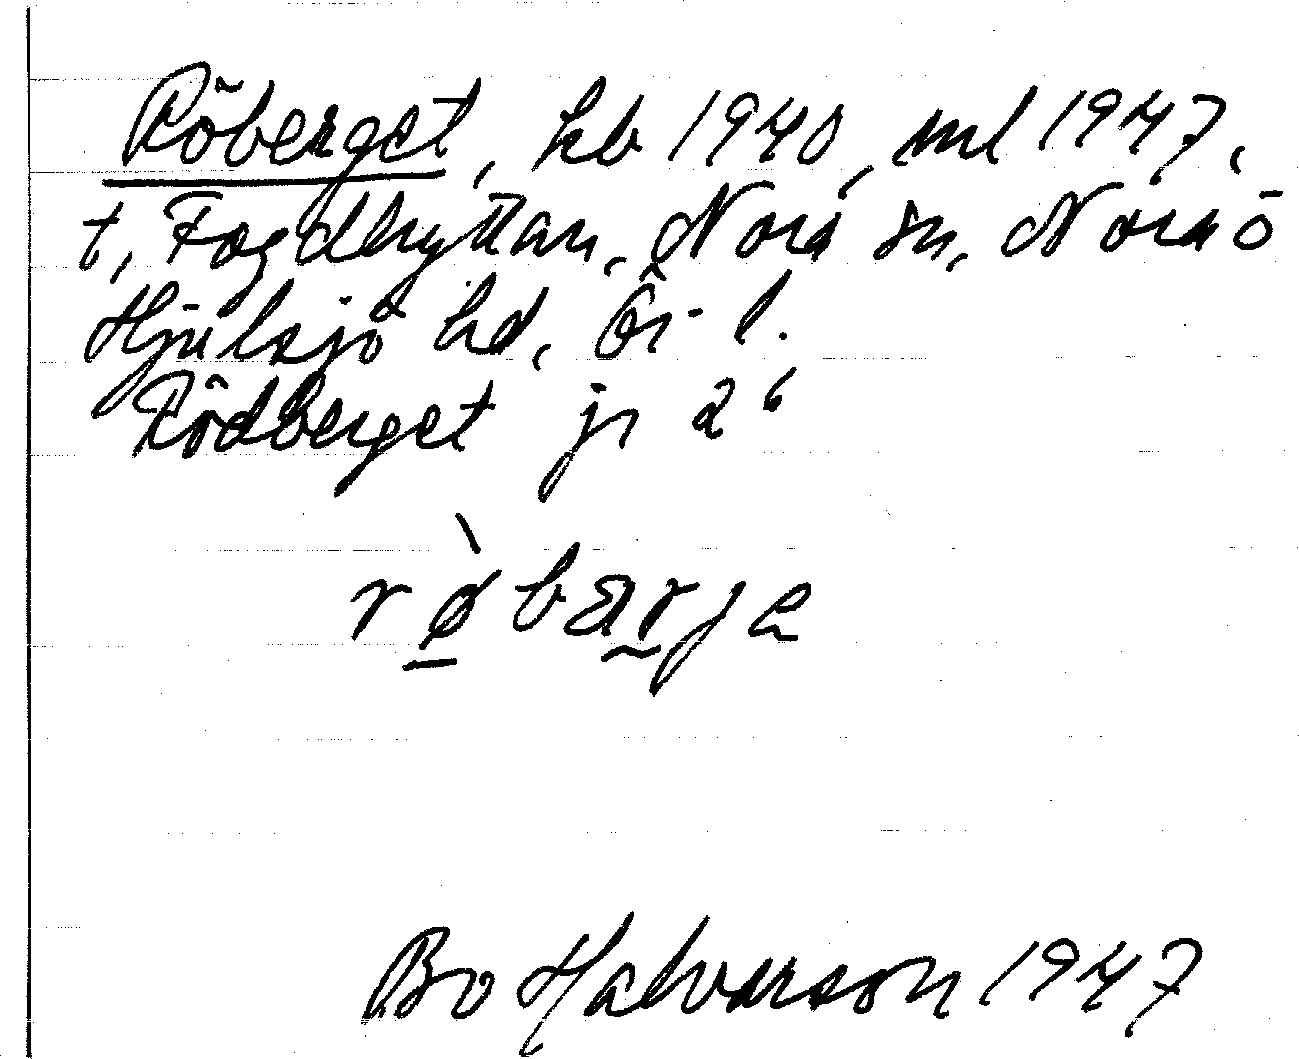 Röberget, kb 1940, ml 1947,
t, Fogdhyttan, Nora sn, Nora o
Hjulsjö hd, Ör l.
Rödberget jr 26
rø̀bærjə
Bo Halvarson 1947